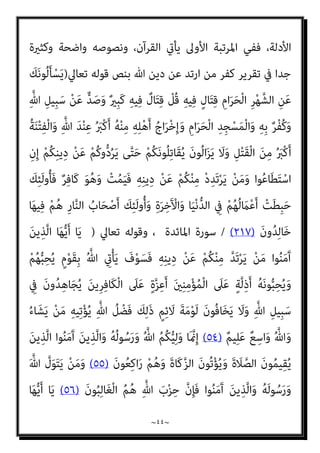 الأدلة، ففي المرتبة الأولى يأتي القرآن، ونصوصه واضحة وكثيرة
جدا في تقرير كفر من ارتد عن دين الله بنص قوله تعالي(يَسْأَلُونَكَ
عَنِ الشَّهْرِ الْحَرَامِ قِتَالٍ فِيهِ قُلْ قِتَالٌ فِيهِ كَبِيرٌ وَصَدٌّ عَنْ سَبِيلِ اللَّهِ
وَكُفْرٌ بِهِ وَالْمَسْجِدِ الْحَرَامِ وَإِخْرَاجُ أَهْلِهِ مِنْهُ أَكْبَرُ عِنْدَ اللَّهِ وَالْفِتْنَةُ
أَكْبَرُ مِنَ الْقَتْلِ وَلَا يَزَالُونَ يُقَاتِلُونَكُمْ حَتَّى يَرُدُّوكُمْ عَنْ دِينِكُمْ إِنِ
اسْتَطَاعُوا وَمَنْ يَرْتَدِدْ مِنْكُمْ عَنْ دِينِهِ فَيَمُتْ وَهُوَ كَافِرٌ فَأُولَئِكَ
حَبِطَتْ أَعْمَالُهُمْ فِي الدُّنْيَا وَالْآخِرَةِ وَأُولَئِكَ أَصْحَابُ النَّارِ هُمْ فِيهَا
خَالِدُونَ (٢١٧) / سورة المائدة ، وقوله تعالي ( يَا أَيُّهَا الَّذِينَ
آمَنُوا مَنْ يَرْتَدَّ مِنْكُمْ عَنْ دِينِهِ فَسَوْفَ يَأْتِي اللَّهُ بِقَوْمٍ يُحِبُّهُمْ
وَيُحِبُّونَهُ أَذِلَّةٍ عَلَى الْمُؤْمِنِينَ أَعِزَّةٍ عَلَى الْكَافِرِينَ يُجَاهِدُونَ فِي
سَبِيلِ اللَّهِ وَلَا يَخَافُونَ لَوْمَةَ لَائِمٍ ذَلِكَ فَضْلُ اللَّهِ يُؤْتِيهِ مَنْ يَشَاءُ
وَاللَّهُ وَاسِعٌ عَلِيمٌ (٥٤) إِنَّمَا وَلِيُّكُمُ اللَّهُ وَرَسُولُهُ وَالَّذِينَ آمَنُوا الَّذِينَ
يُقِيمُونَ الصَّلَاةَ وَيُؤْتُونَ الزَّكَاةَ وَهُمْ رَاكِعُونَ (٥٥) وَمَنْ يَتَوَلَّ اللَّهَ
وَرَسُولَهُ وَالَّذِينَ آمَنُوا فَإِنَّ حِزْبَ اللَّهِ هُمُ الْغَالِبُونَ (٥٦) يَا أَيُّهَا
~11~